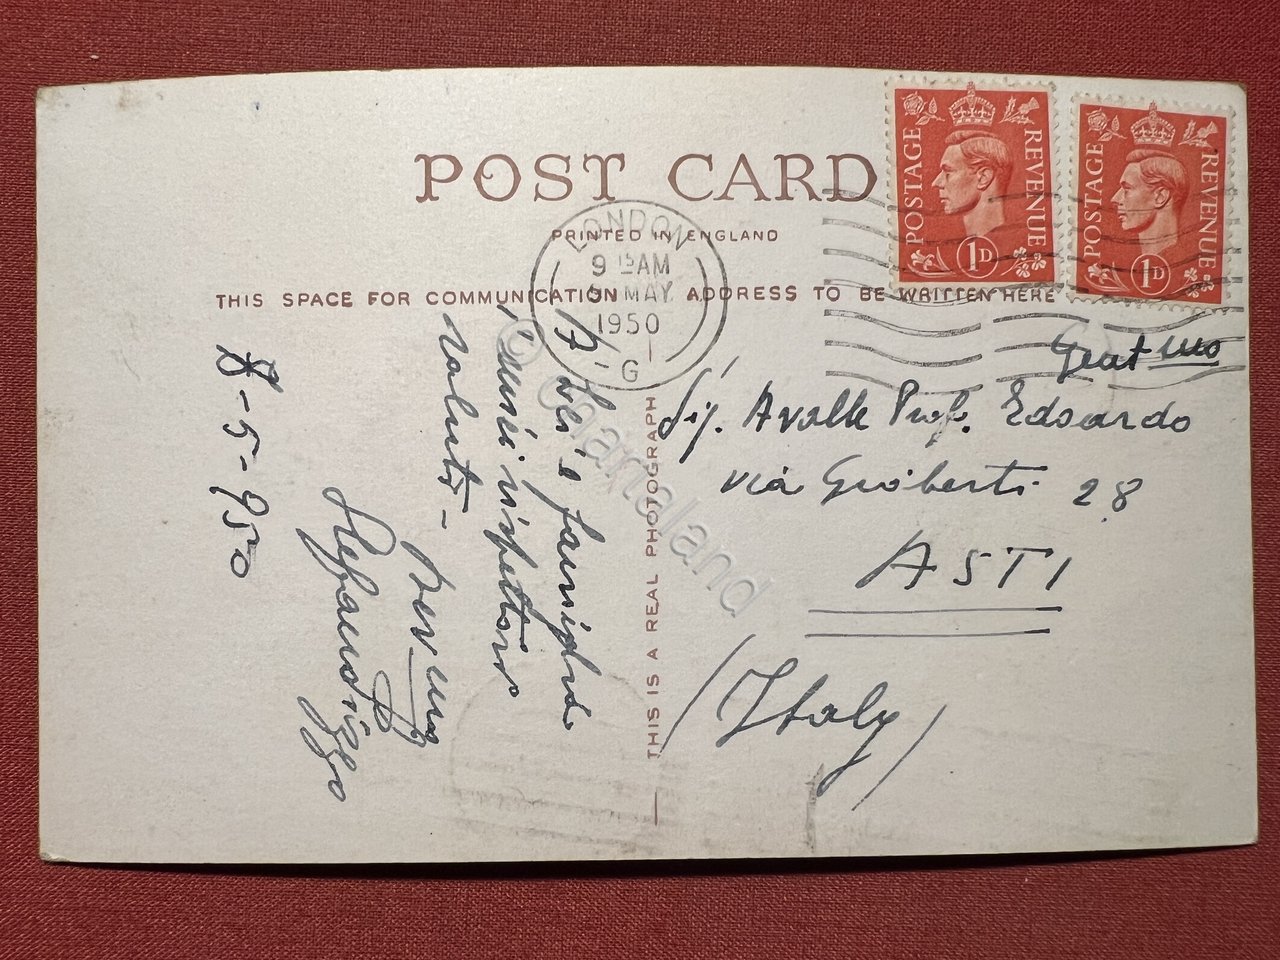 POST CARD
PRINTED IN ENGLAND
THIS SPACE FOR COMMUNICATION
ADDRESS TO BE WRITTEN HERE
THIS IS A REAL PHOTOGRAPH
POSTAGE REVENUE
1D
POSTAGE REVENUE
1D
LONDON
9 15 AM
MAY
1950
G
Gent mo
Sig. Avalle Prof. Edoardo
via Gioberti 28
ASTI
(Italy)
A Lei e famiglia
saluti -
8-5-950
© cartaland